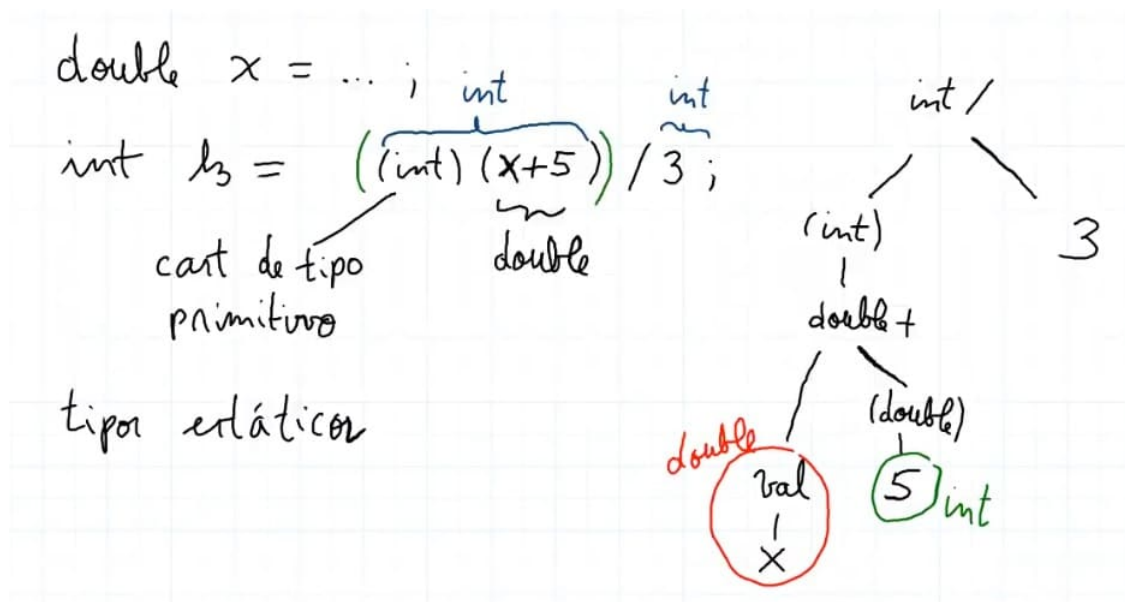 double x = ... ;
int int
int b = ((int) (x+5)) / 3 ;
cast de tipo primitivo
double
tipos estáticos
int /
(int) 3
double +
double (double)
val 5 int
x